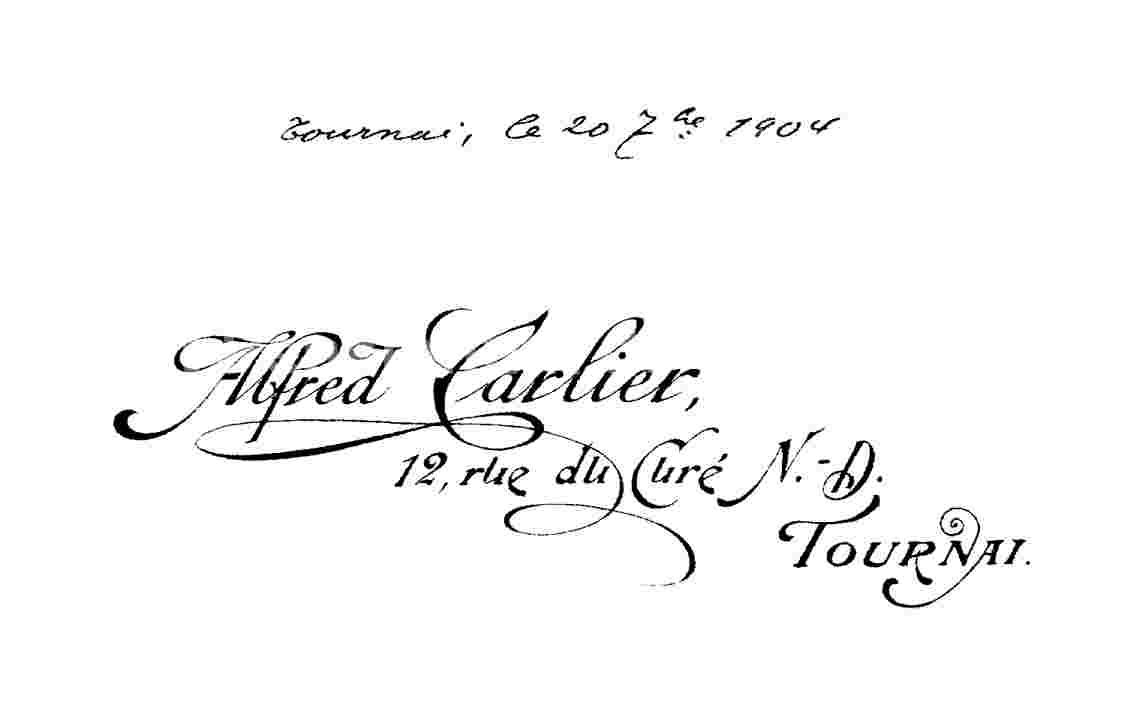 Tournai, le 20 7bre 1904
Alfred Carlier,
12, rue du Curé N.-D.
TOURNAI.